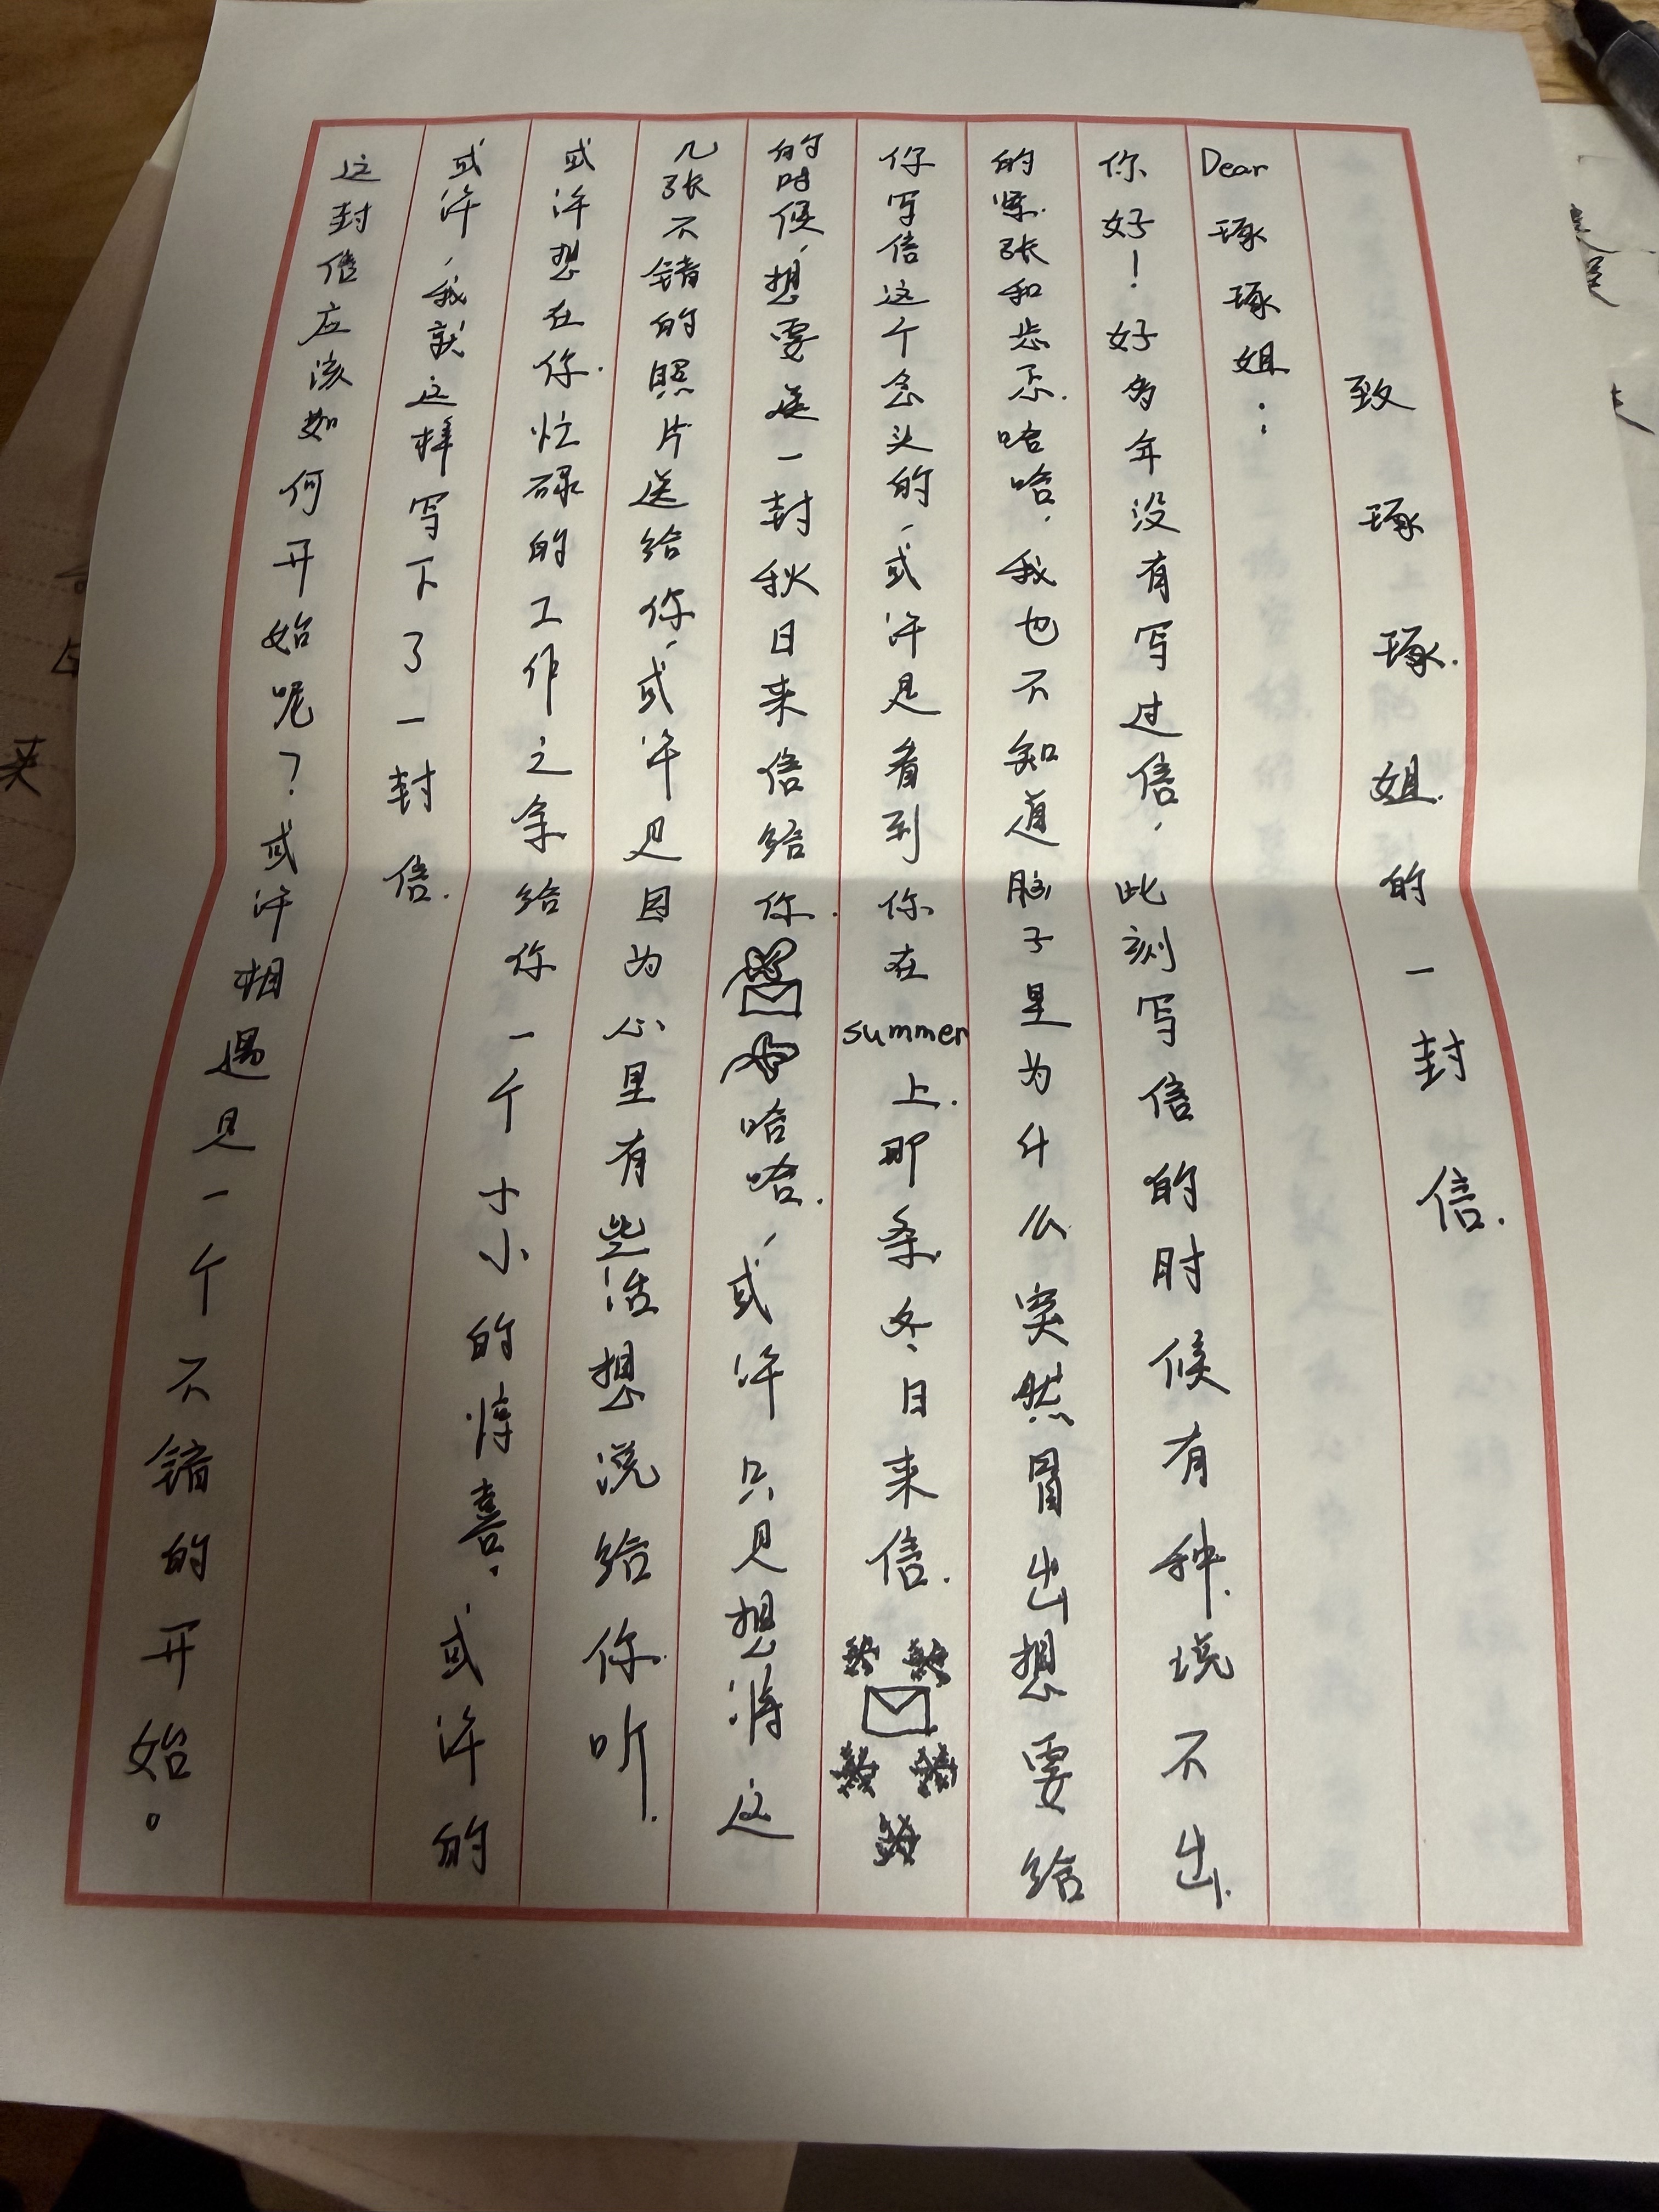 致琢琢姐的一封信.
Dear 琢琢姐：
你好！好多年没有写过信，此刻写信的时候有种说不出
的紧张和忐忑.哈哈，我也不知道脑子里为什么突然冒出想要给
你写信这个念头的，或许是看到你在summer上.那条冬日来信.
的时候，想要送一封秋日来信给你.哈哈.，或许只是想将这
几张不错的照片送给你，或许是因为心里有些话想说给你听.
或许想在你忙碌的工作之余给你一个小小的惊喜，或许的
或许，我就这样写下了一封信.
这封信应该如何开始呢？或许相遇是一个不错的开始。